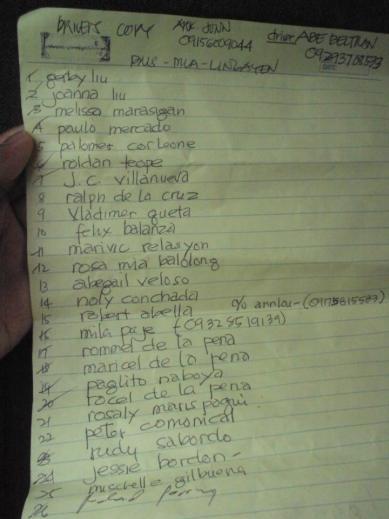 DRIVERS COPY
ATE JUNN
09156009044
driver ABE BELTRAN
PNS - MLA - LINGAYEN
1 gerby liu
2 joanna liu
3 melissa marasigan
4 paulo mercado
5 palomer corleone
6 roldan teope
7 J.C. villanueva
8 ralph de la cruz
9 vladimer queta
10 felix balanza
11 marivic relasyon
12 rosa mia balolong
13 abegail veloso
14 noly conchada
15 robert abella c/o annlou - (09175815583)
16 mila paje (09328519139)
17 rommel de la pena
18 maricel de la pena
19 paglito naboya
20 rocel de la pena
21 rosaly maris paqui
22 peter comonical
23 rudy sabordo
24 jessie bordon
25 muschelle gilbuena
26